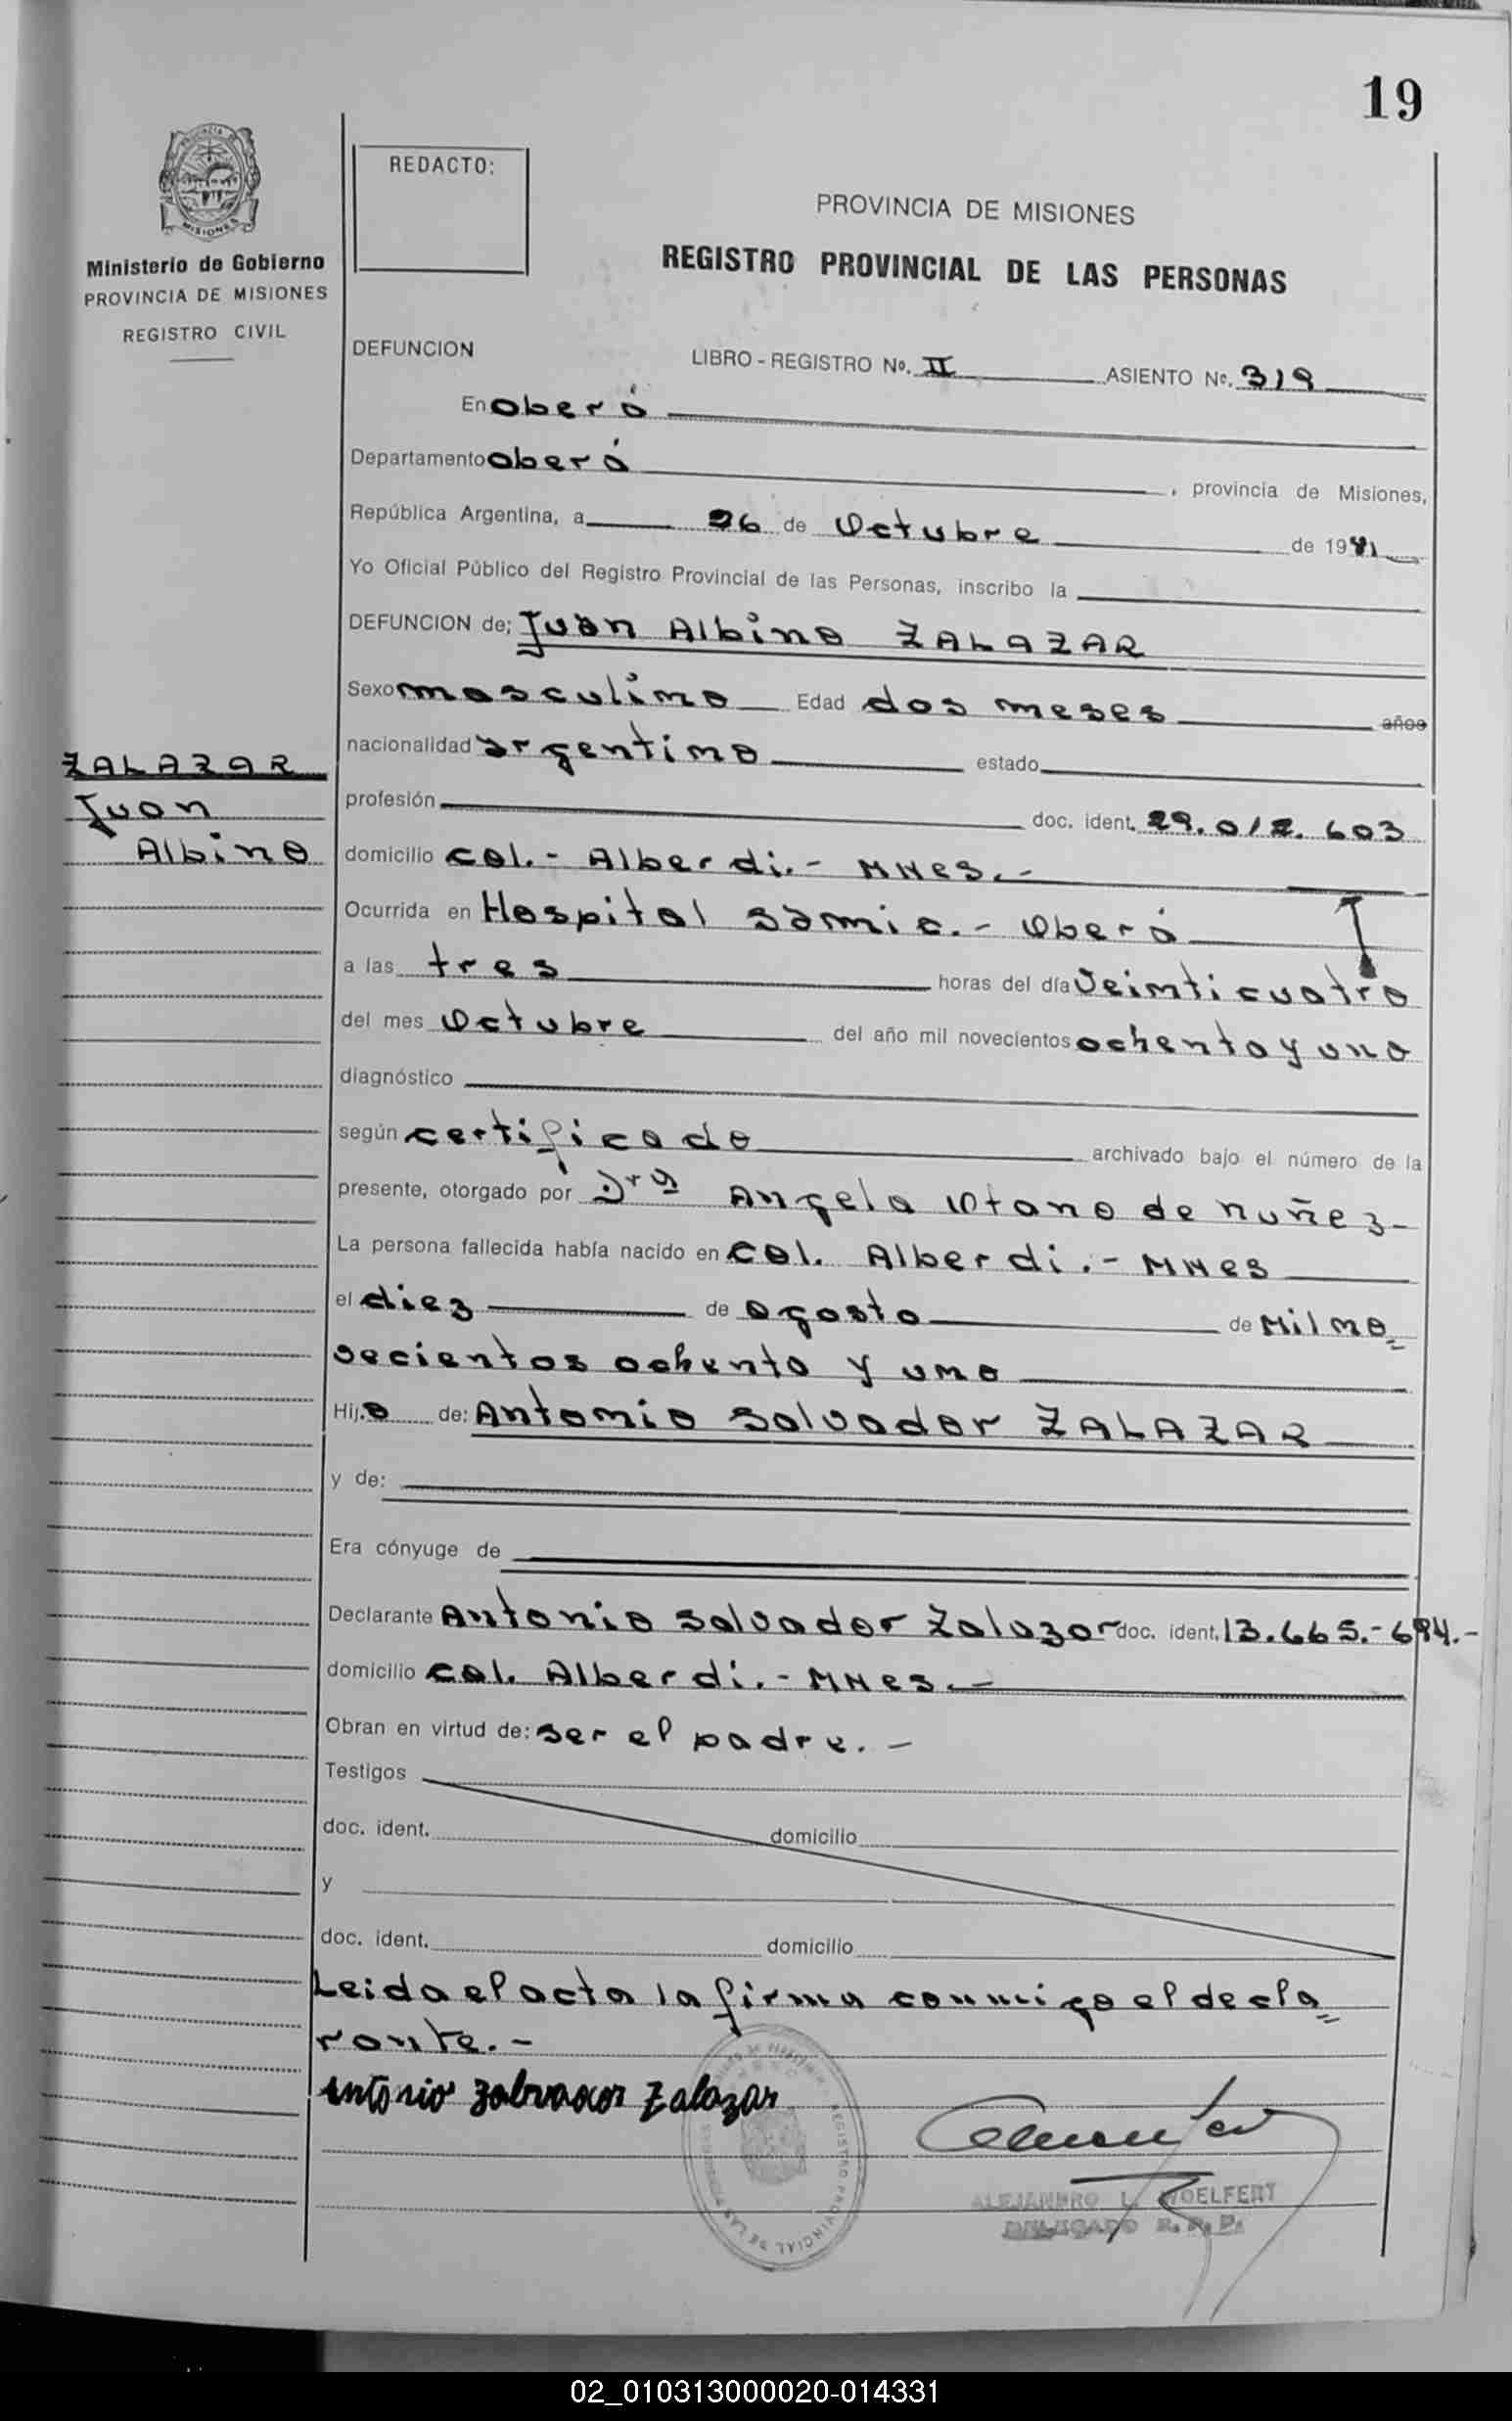 19
REDACTO:
PROVINCIA DE MISIONES
REGISTRO PROVINCIAL DE LAS PERSONAS
Ministerio de Gobierno
PROVINCIA DE MISIONES
REGISTRO CIVIL
DEFUNCION LIBRO - REGISTRO Nº. II ASIENTO Nº. 319
En Oberá
Departamento Oberá, provincia de Misiones,
República Argentina, a 26 de Octubre de 1981
Yo Oficial Público del Registro Provincial de las Personas, inscribo la
DEFUNCION de; Juan Albino ZALAZAR
Sexo masculino Edad dos meses años
nacionalidad argentino estado
ZALAZAR
Juan
Albino
profesión doc. ident. 29.012.603
domicilio Col.- Alberdi.- MNes.-
Ocurrida en Hospital Samic.- Oberá
a las tres horas del día Veinticuatro
del mes Octubre del año mil novecientos ochenta y uno
diagnóstico
según certificado archivado bajo el número de la
presente, otorgado por Dra Angela Otano de nuñez-
La persona fallecida había nacido en Col. Alberdi.- MNes
el diez de agosto de Mil no=
vecientos ochenta y uno
Hijo de: Antonio Salvador ZALAZAR
y de:
Era cónyuge de
Declarante Antonio Salvador Zalazar doc. ident. 13.665.-684.-
domicilio Col. Alberdi.- MNes.-
Obran en virtud de: ser el padre.-
Testigos
doc. ident. domicilio
y
doc. ident. domicilio
Leida el acta la firma conmigo el decla=
rante.-
Antonio Zalvador Zalazar
REGISTRO PROVINCIAL DE LAS PERSONAS
ALEJANDRO L. WOELFERT
DELEGADO R. P. P.
02_010313000020-014331